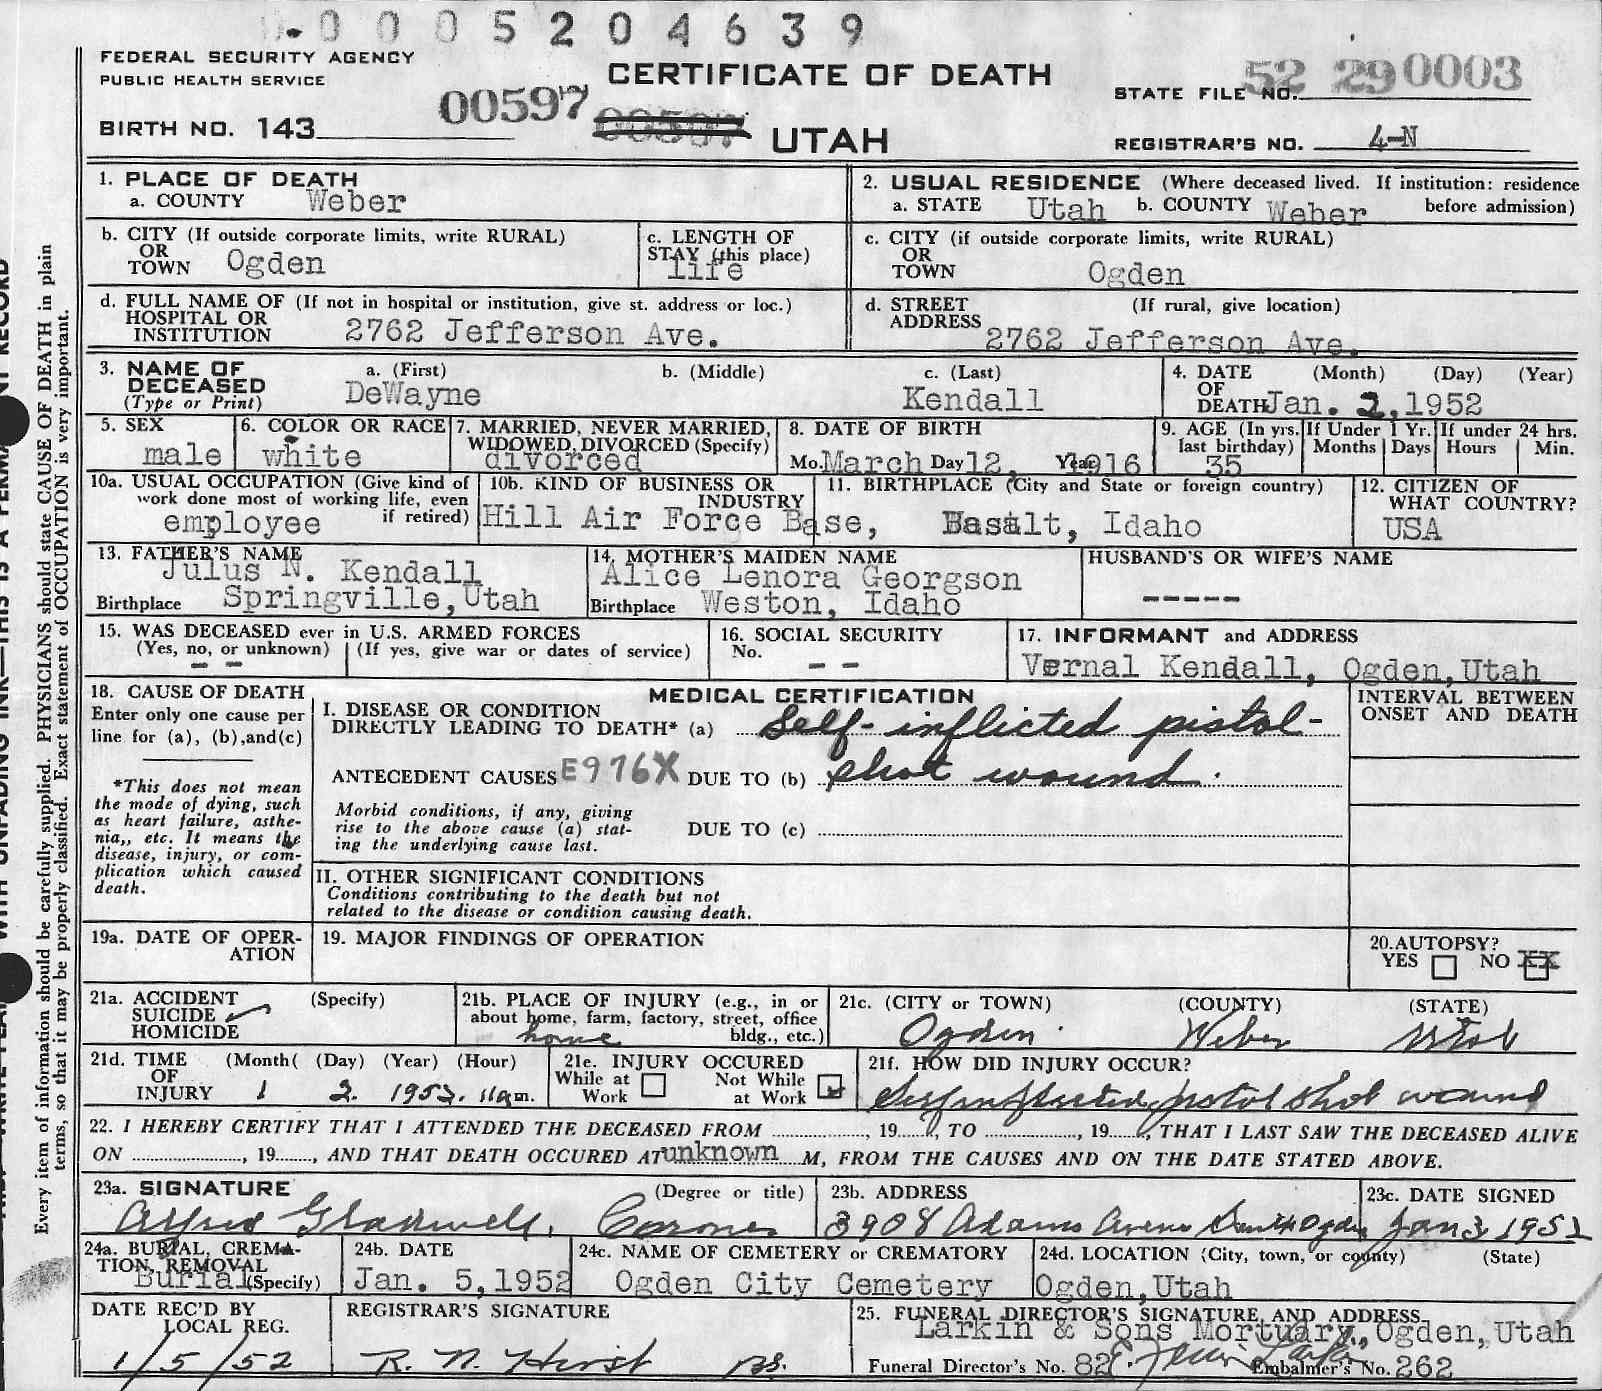 0 0 0 5 2 0 4 6 3 9
FEDERAL SECURITY AGENCY
PUBLIC HEALTH SERVICE
CERTIFICATE OF DEATH
UTAH
00597
STATE FILE NO. 52 29 0003
BIRTH NO. 143
REGISTRAR'S NO. 4-N
1. PLACE OF DEATH
a. COUNTY Weber
2. USUAL RESIDENCE (Where deceased lived. If institution: residence before admission)
a. STATE Utah b. COUNTY Weber
b. CITY (If outside corporate limits, write RURAL) OR TOWN Ogden
c. LENGTH OF STAY (this place) Life
c. CITY (if outside corporate limits, write RURAL) OR TOWN Ogden
d. FULL NAME OF (If not in hospital or institution, give st. address or loc.) HOSPITAL OR INSTITUTION 2762 Jefferson Ave.
d. STREET ADDRESS (If rural, give location) 2762 Jefferson Ave.
3. NAME OF DECEASED (Type or Print)
a. (First) DeWayne b. (Middle) c. (Last) Kendall
4. DATE OF DEATH (Month) (Day) (Year) Jan. 2, 1952
5. SEX male
6. COLOR OR RACE white
7. MARRIED, NEVER MARRIED, WIDOWED, DIVORCED (Specify) divorced
8. DATE OF BIRTH Mo. March Day 12, Year 1916
9. AGE (In yrs. last birthday) 35
If Under 1 Yr. Months Days
If under 24 hrs. Hours Min.
10a. USUAL OCCUPATION (Give kind of work done most of working life, even if retired) employee
10b. KIND OF BUSINESS OR INDUSTRY Hill Air Force Base,
11. BIRTHPLACE (City and State or foreign country) Basalt, Idaho
12. CITIZEN OF WHAT COUNTRY? USA
13. FATHER'S NAME Julus N. Kendall
Birthplace Springville, Utah
14. MOTHER'S MAIDEN NAME Alice Lenora Georgson
Birthplace Weston, Idaho
HUSBAND'S OR WIFE'S NAME -----
15. WAS DECEASED ever in U.S. ARMED FORCES
(Yes, no, or unknown) (If yes, give war or dates of service)
- -
16. SOCIAL SECURITY No. - -
17. INFORMANT and ADDRESS
Vernal Kendall, Ogden, Utah
18. CAUSE OF DEATH
Enter only one cause per line for (a), (b), and (c)
*This does not mean the mode of dying, such as heart failure, asthenia,, etc. It means the disease, injury, or complication which caused death.
MEDICAL CERTIFICATION
INTERVAL BETWEEN ONSET AND DEATH
I. DISEASE OR CONDITION DIRECTLY LEADING TO DEATH* (a) Self-inflicted pistol-
ANTECEDENT CAUSES E976X DUE TO (b) shot wound.
Morbid conditions, if any, giving rise to the above cause (a) stating the underlying cause last.
DUE TO (c)
II. OTHER SIGNIFICANT CONDITIONS
Conditions contributing to the death but not related to the disease or condition causing death.
19a. DATE OF OPERATION
19. MAJOR FINDINGS OF OPERATION
20. AUTOPSY? YES NO XX
21a. ACCIDENT SUICIDE HOMICIDE (Specify)
21b. PLACE OF INJURY (e.g., in or about home, farm, factory, street, office bldg., etc.) home
21c. (CITY or TOWN) (COUNTY) (STATE)
Ogden Weber Utah
21d. TIME OF INJURY (Month( (Day) (Year) (Hour)
1 2. 1952. 11am.
21e. INJURY OCCURED
While at Work Not While at Work
21f. HOW DID INJURY OCCUR?
Self inflicted pistol shot wound
22. I HEREBY CERTIFY THAT I ATTENDED THE DECEASED FROM , 19 , TO , 19 , THAT I LAST SAW THE DECEASED ALIVE
ON , 19 , AND THAT DEATH OCCURED AT unknown M, FROM THE CAUSES AND ON THE DATE STATED ABOVE.
23a. SIGNATURE (Degree or title)
Alfred Gladwell, Coroner
23b. ADDRESS
3908 Adams Avenue South Ogden
23c. DATE SIGNED
Jan 3 1952
24a. BURIAL, CREMATION, REMOVAL (Specify) Burial
24b. DATE
Jan. 5, 1952
24c. NAME OF CEMETERY OR CREMATORY
Ogden City Cemetery
24d. LOCATION (City, town, or county) (State)
Ogden, Utah
DATE REC'D BY LOCAL REG.
1/5/52
REGISTRAR'S SIGNATURE
R. N. Hirst
25. FUNERAL DIRECTOR'S SIGNATURE, AND ADDRESS
Larkin & Sons Mortuary, Ogden, Utah
Funeral Director's No. 82 Embalmer's No. 262
Every item of information should be carefully supplied. PHYSICIANS should state CAUSE OF DEATH in plain
terms, so that it may be properly classified. Exact statement of OCCUPATION is very important.